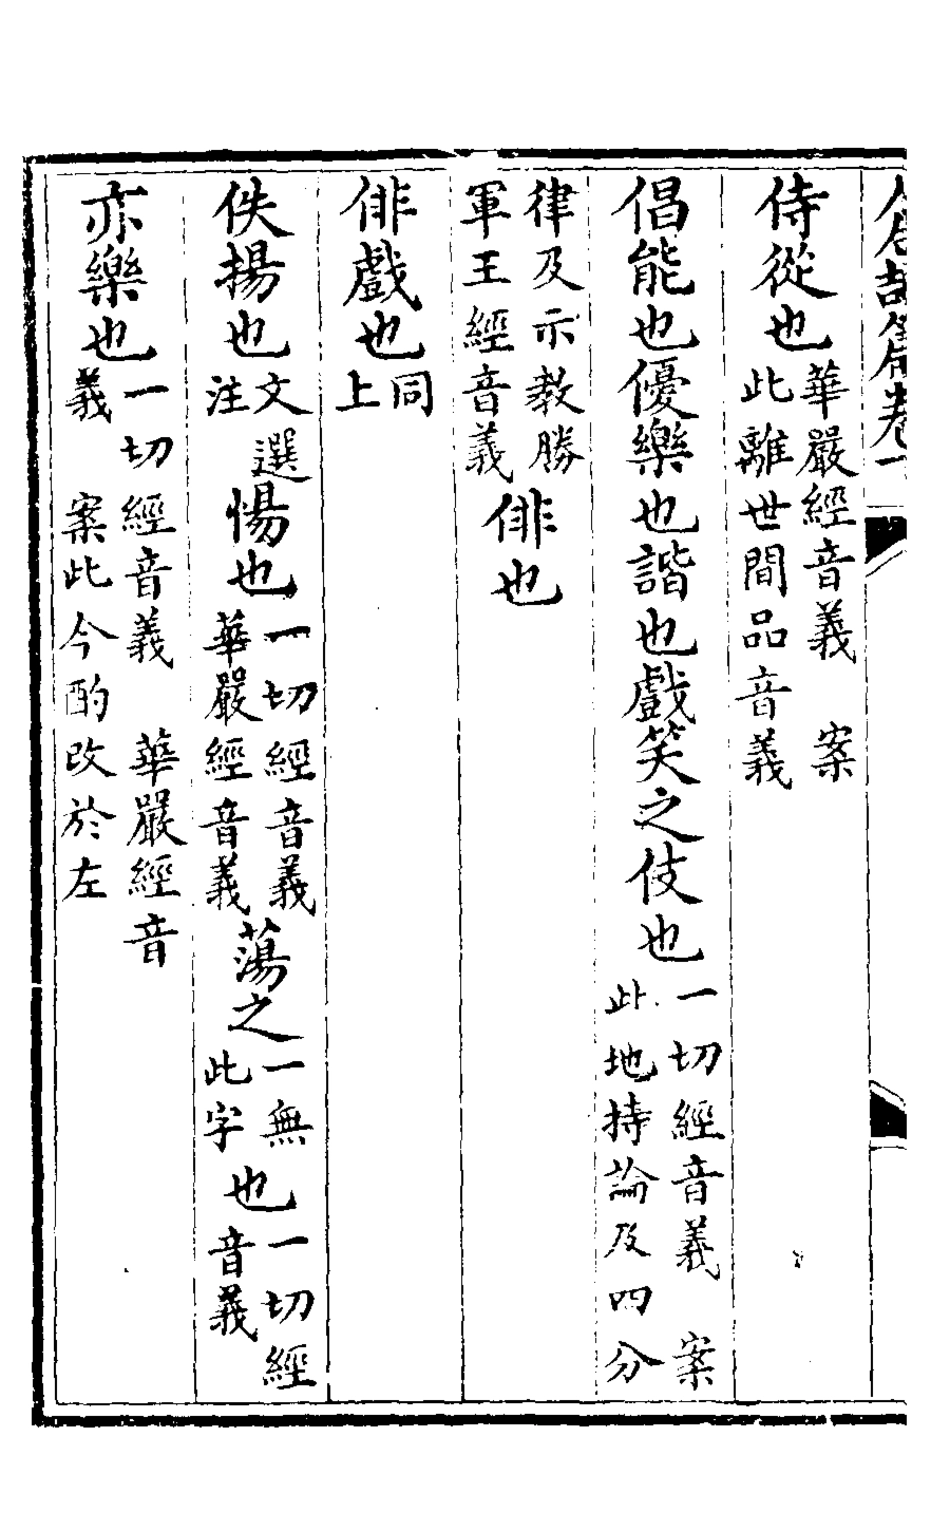 倉頡篇卷一
侍從也華嚴經音義 案此離世間品音義
倡能也優樂也諧也戲笑之伎也一切經音義 案此地持論及四分
律及示教勝軍王經音義俳也
俳戲也同上
佚揚也文選注愓也一切經音義華嚴經音義蕩之一無此字也一切經音義
亦樂也一切經音義 華嚴經音義 案此今酌改於左